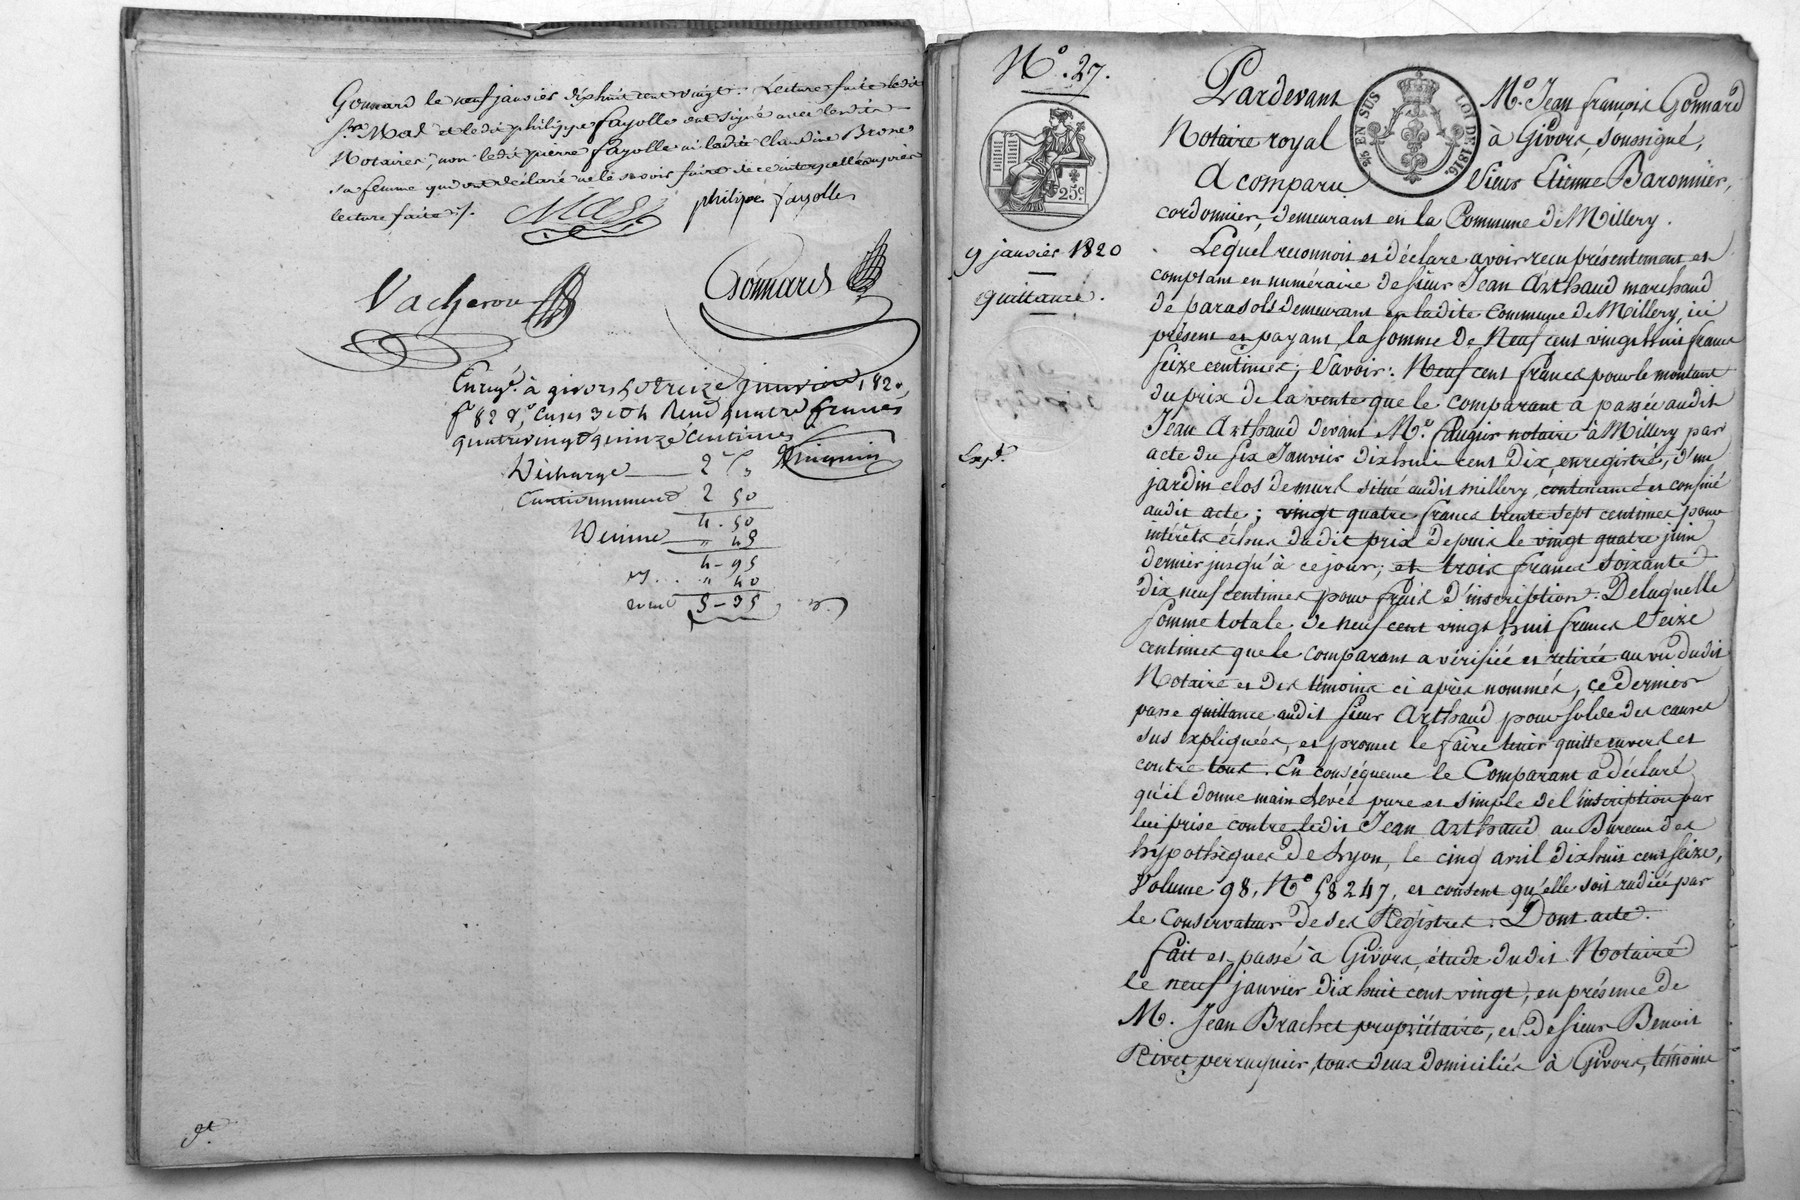 Gonnard le neuf janvier dix huit cent vingt. Lecture faite ledit
Sr. Mas et ledit philippe fayolle ont signé avec lesdits
Notaires, non ledit pierre fayolle ni ladite Claudine Brosse
sa femme qui ont déclaré ne le savoir faire de ce interpellés après
lecture faite ./.
Mas
philipe fayolle
Vacheron
Gonnard
Enregé. à givors le treize janvier 1820,
fo 82 Vo, Cases 3 et 4 Reçu quatre francs
quatrevingt quinze centimes
Décharge 2 f "
Cautionnement 2 50
4 . 50
Décime " 45
4 - 95
" 40
5 - 35
No. 27.
25c.
9 janvier 1820
quittance.
Expd.
EN SUS LOI DE 1816.
Pardevant Me. Jean françois Gonnard
Notaire royal à Givors, soussigné,
A comparu Sieur Etienne Baronnier,
cordonnier, demeurant en la Commune de Millery.
Lequel reconnoit et déclare avoir reçu présentement et
comptant en numéraire de sieur Jean Arthaud marchand
de parasols demeurant en ladite Commune de Millery, ici
présent et payant, la somme de Neuf cent vingt huit francs
seize centimes; Savoir: Neuf cent francs pour le montant
du prix de la vente que le comparant a passée audit
Jean Arthaud devant Me. faugier notaire à Millery par
acte du six Janvier dix huit cent dix, enregistré, d'un
jardin clos de murs situé audit millery, contenance et confiné
audit acte; vingt quatre francs trente sept centimes pour
intérêts échus dudit prix depuis le vingt quatre juin
dernier jusqu'à ce jour; et trois francs soixante
dix neuf centimes pour frais d'inscription. De laquelle
somme totale de neuf cent vingt huit francs Seize
centimes que le comparant a vérifiée et retirée au vu dudit
Notaire et des témoins ci après nommés, ce dernier
passe quittance audit sieur Arthaud pour solde des causes
sus expliquées, et promet le faire tenir quitte envers et
contre tous. En conséquence le Comparant a déclaré
qu'il donne main levée pure et simple de l'inscription par
lui prise contre ledit Jean Arthaud au Bureau des
hypothèques de Lyon, le cinq avril dix huit cent seize,
Volume 98, No 58247, et consent qu'elle soit radiée par
le Conservateur de ses Régistres. Dont acte.
fait et passé à Givors, étude dudit Notaire
le neuf janvier dix huit cent vingt, en présence de
M. Jean Brachet propriétaire, et de sieur Benoit
Rivet perruquier, tous deux domiciliés à Givors, témoins